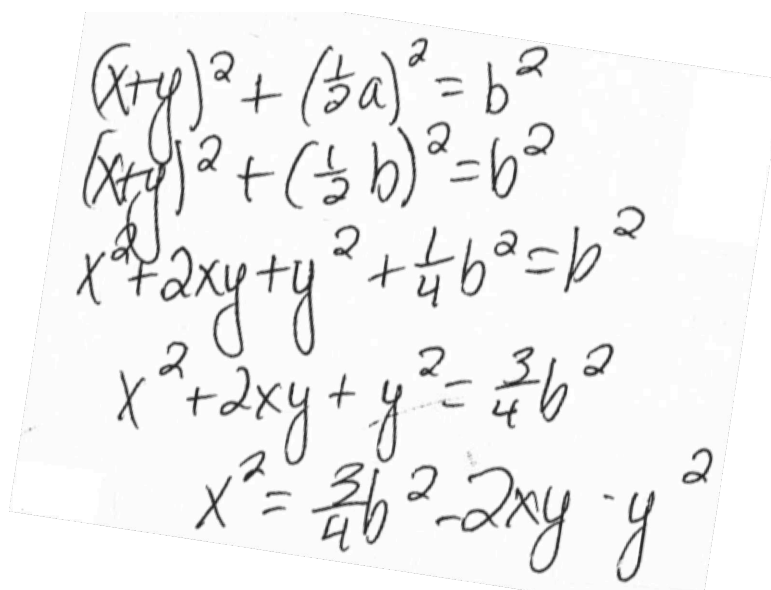 (x+y)² + (½a)² = b²
(x+y)² + (½b)² = b²
x²+2xy+y² + ¼b² = b²
x²+2xy+y² = ¾b²
x² = ¾b² - 2xy - y²